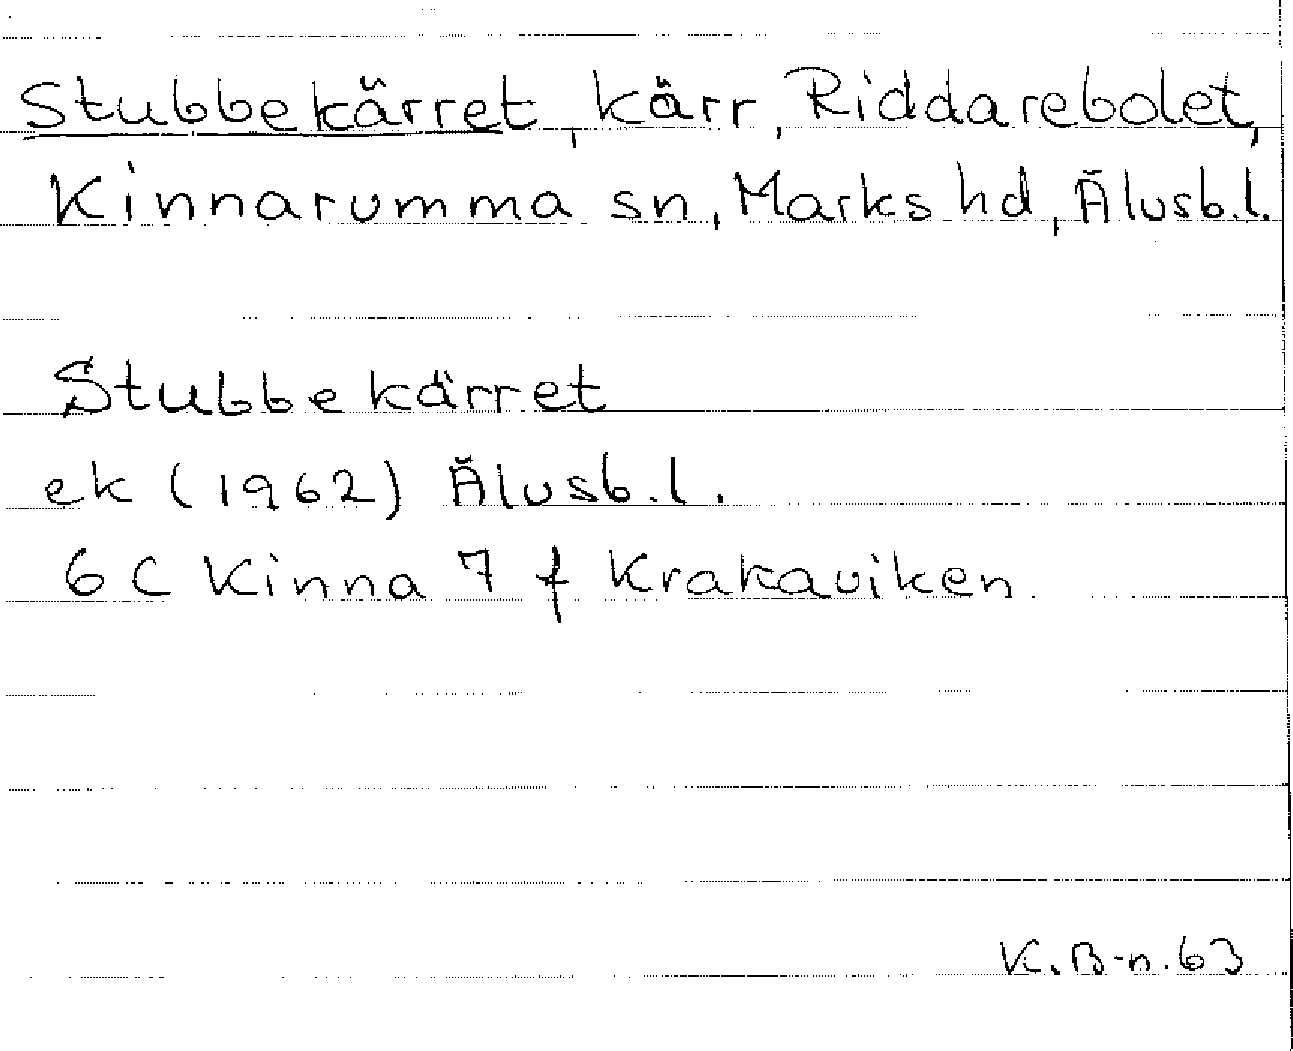 Stubbekärret, kärr, Riddarebolet,
Kinnarumma sn, Marks hd, Älvsb.l.
Stubbekärret
ek (1962) Älvsb.l.
6 C Kinna 7 f Krakaviken
K.B-n.63